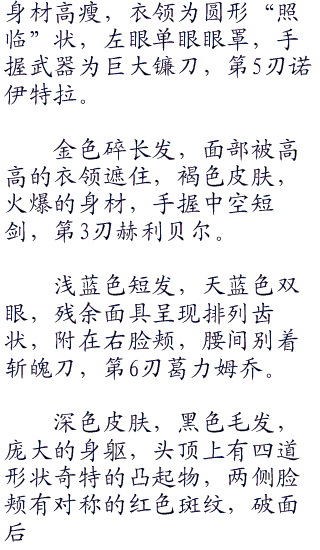 身材高瘦，衣领为圆形“照
临”状，左眼单眼眼罩，手
握武器为巨大镰刀，第5刃诺
伊特拉。
金色碎长发，面部被高
高的衣领遮住，褐色皮肤，
火爆的身材，手握中空短
剑，第3刃赫利贝尔。
浅蓝色短发，天蓝色双
眼，残余面具呈现排列齿
状，附在右脸颊，腰间别着
斩魄刀，第6刃葛力姆乔。
深色皮肤，黑色毛发，
庞大的身躯，头顶上有四道
形状奇特的凸起物，两侧脸
颊有对称的红色斑纹，破面
后